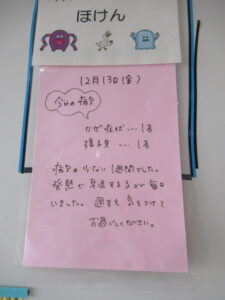 ほけん
12月13日(金)
今日の病欠
かぜ症状…1名
様子見…1名
病欠の少ない1週間でした。
発熱で早退する子が毎日
いました。週末も気をつけて
お過ごしください。